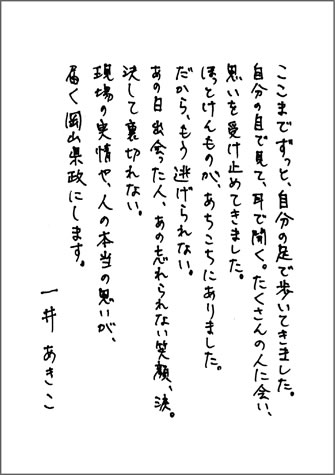 ここまでずっと、自分の足で歩いてきました。
自分の目で見て、耳で聞く。たくさんの人に会い、
思いを受け止めてきました。
ほっとけんものが、あちこちにありました。
だから、もう逃げられない。
あの日出会った人、あの忘れられない笑顔、涙。
決して裏切れない。
現場の実情や、人の本当の思いが、
届く岡山県政にします。
一井あきこ